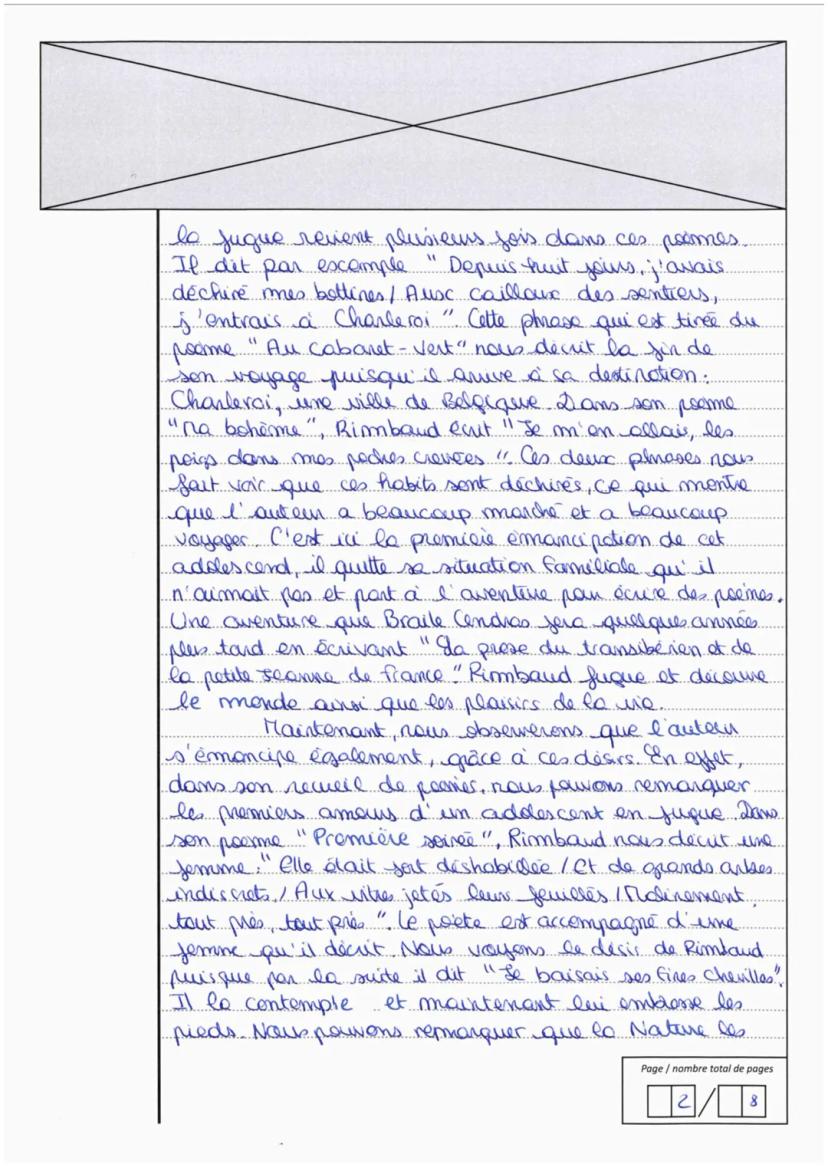 la fugue revient plusieurs fois dans ces poèmes.
Il dit par escemple " Depuis huit jours, j'avais
déchiré mes bottines / Ausc cailloux des sentiers,
j'entrais à Charleroi ". Cette phrase qui est tirée du
poème " Au cabaret-vert" nous décrit la fin de
son voyage puisqu'il arrive à sa destination :
Charleroi, une ville de Belgique. Dans son poème
"Ma bohème", Rimmbaud écrit " Je m'en allais, les
poings dans mes poches crevées ". Ces deux phrases nous
fait voir que ces habits sont déchirés, ce qui montre
que l'auteur a beaucoup marché et a beaucoup
voyager. C'est ici la première émancipation de cet
adolescend, il quitte sa situation familiale qu'il
n'aimait pas et part à l'aventure pour écrire des poèmes.
Une aventure que Braile Cendras fera quelques année
plus tard en écrivant " La prose du transibérien et de
la petite Jeanne de france ". Rimmbaud fugue et découvre
le monde ainsi que les plaisirs de la vie.
Maintenant, nous observerons que l'auteur
s'émancipe également, grâce à ces désirs. En effet,
dans son recueil de poésies, nous pouvons remarquer
les premiers amours d'un adolescent en fugue. Dans
son poème " Première soirée ", Rimmbaud nous décrit une
femme : " Elle était fort déshabillée / Et de grands arbres
indiscrets / Aux vitres jetés leurs feuillés / Malinement,
tout près, tout près ". Le poète est accompagné d'une
femme qu'il décrit. Nous voyons le désir de Rimbaud
puisque par la suite il dit " Je baisais ses fines chevilles".
Il la contemple et maintenant lui embrasse les
pieds. Nous pouvons remarquer que la Nature les
Page / nombre total de pages
2 / 8